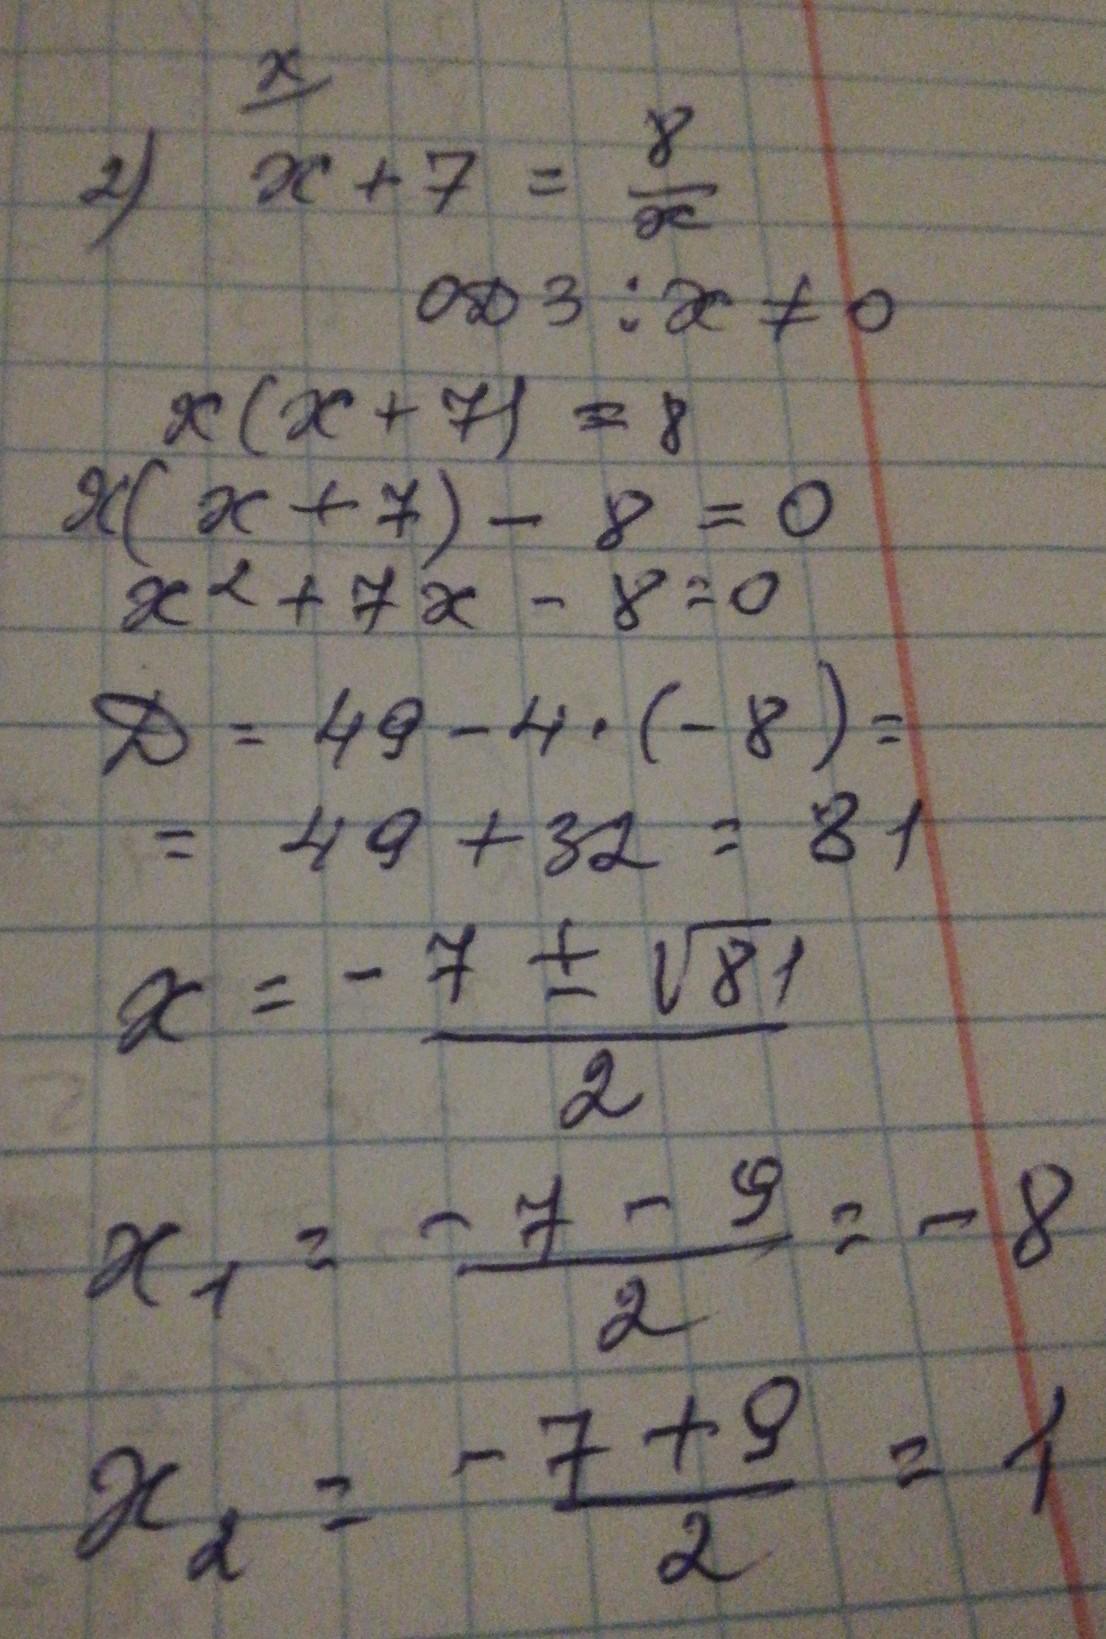 x
2) x + 7 = 8/x
ОДЗ : x ≠ 0
x(x + 7) = 8
x(x + 7) - 8 = 0
x² + 7x - 8 = 0
D = 49 - 4 · (-8) =
= 49 + 32 = 81
x = (-7 ± √81)/2
x₁ = (-7 - 9)/2 = -8
x₂ = (-7 + 9)/2 = 1